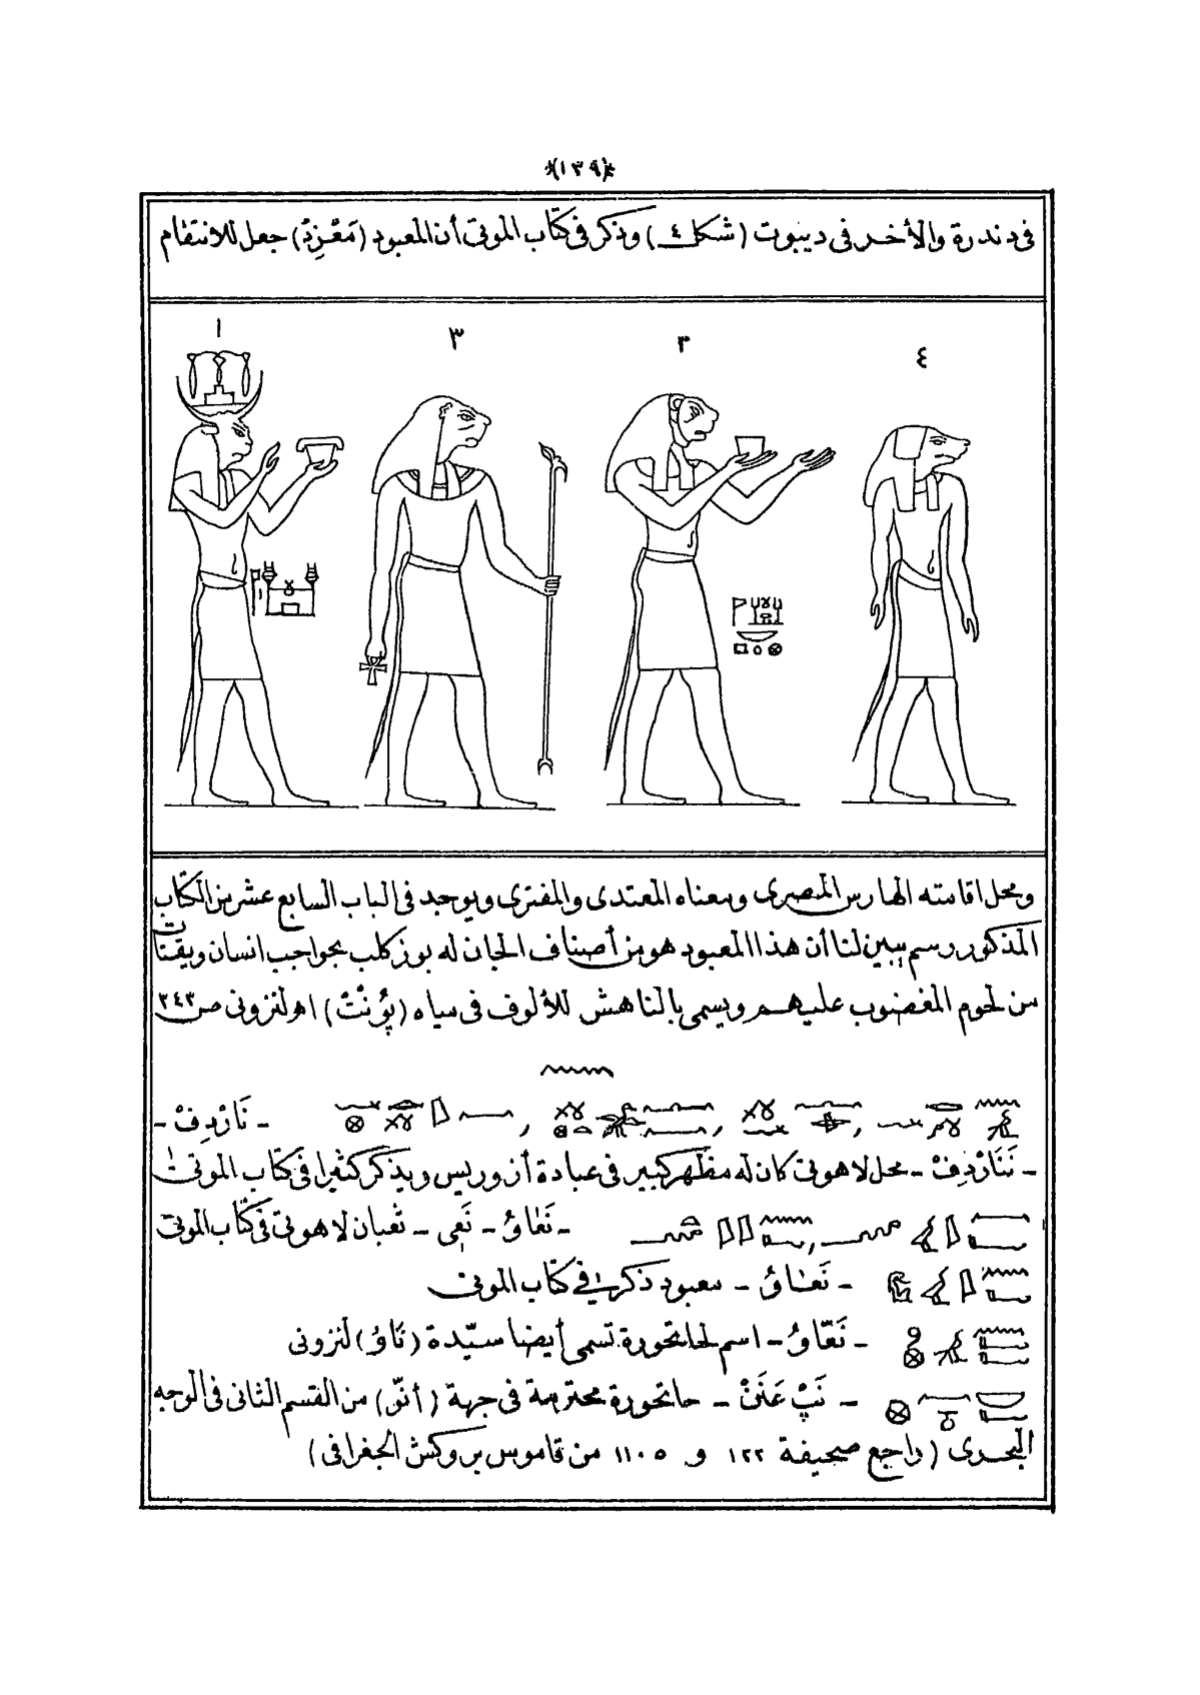 ﴿١٣٩﴾
فى دندرة والأخر فى ديبوت (شكل ٤) وذكر فى كتاب الموتى أن المعبود (مَعْزِدْ) جعل للانتقام
١ ٣ ٣ ٤
ومحل اقامته الهارس المصرى ومعناه المعتدى والمفترى ويوجد فى الباب السابع عشر من الكتاب
المذكور رسم يبين لنا أن هذا المعبود هو من أصناف الجان له بوز كلب بحواجب انسان ويقتات
من لحوم المغضوب عليهم ويسمى بالناهش للألوف فى مياه (پُونْتْ) اه لنزونى ص ٣٤٣
- نَارْدِفْ -
- نَنَارْدِفْ - محل لاهوتى كان له مظهر كبير فى عبادة أزوريس ويذكر كثيرا فى كتاب الموتى
- نَعَاوُ - نَعِى - ثعبان لاهوتى فى كتاب الموتى
- نَعَاوُ - معبود ذكر فى كتاب الموتى
- نَعَّاوُ - اسم لحاتحورة تسمى أيضا سيّدة (نَاوُ) لنزونى
- نَبْ عَنَنْ - حاتحورة محترمة فى جهة (أننّ) من القسم الثانى فى الوجه
البحرى (راجع صحيفة ١٢٢ و ١١٠٥ من قاموس بروكش الجغرافى)